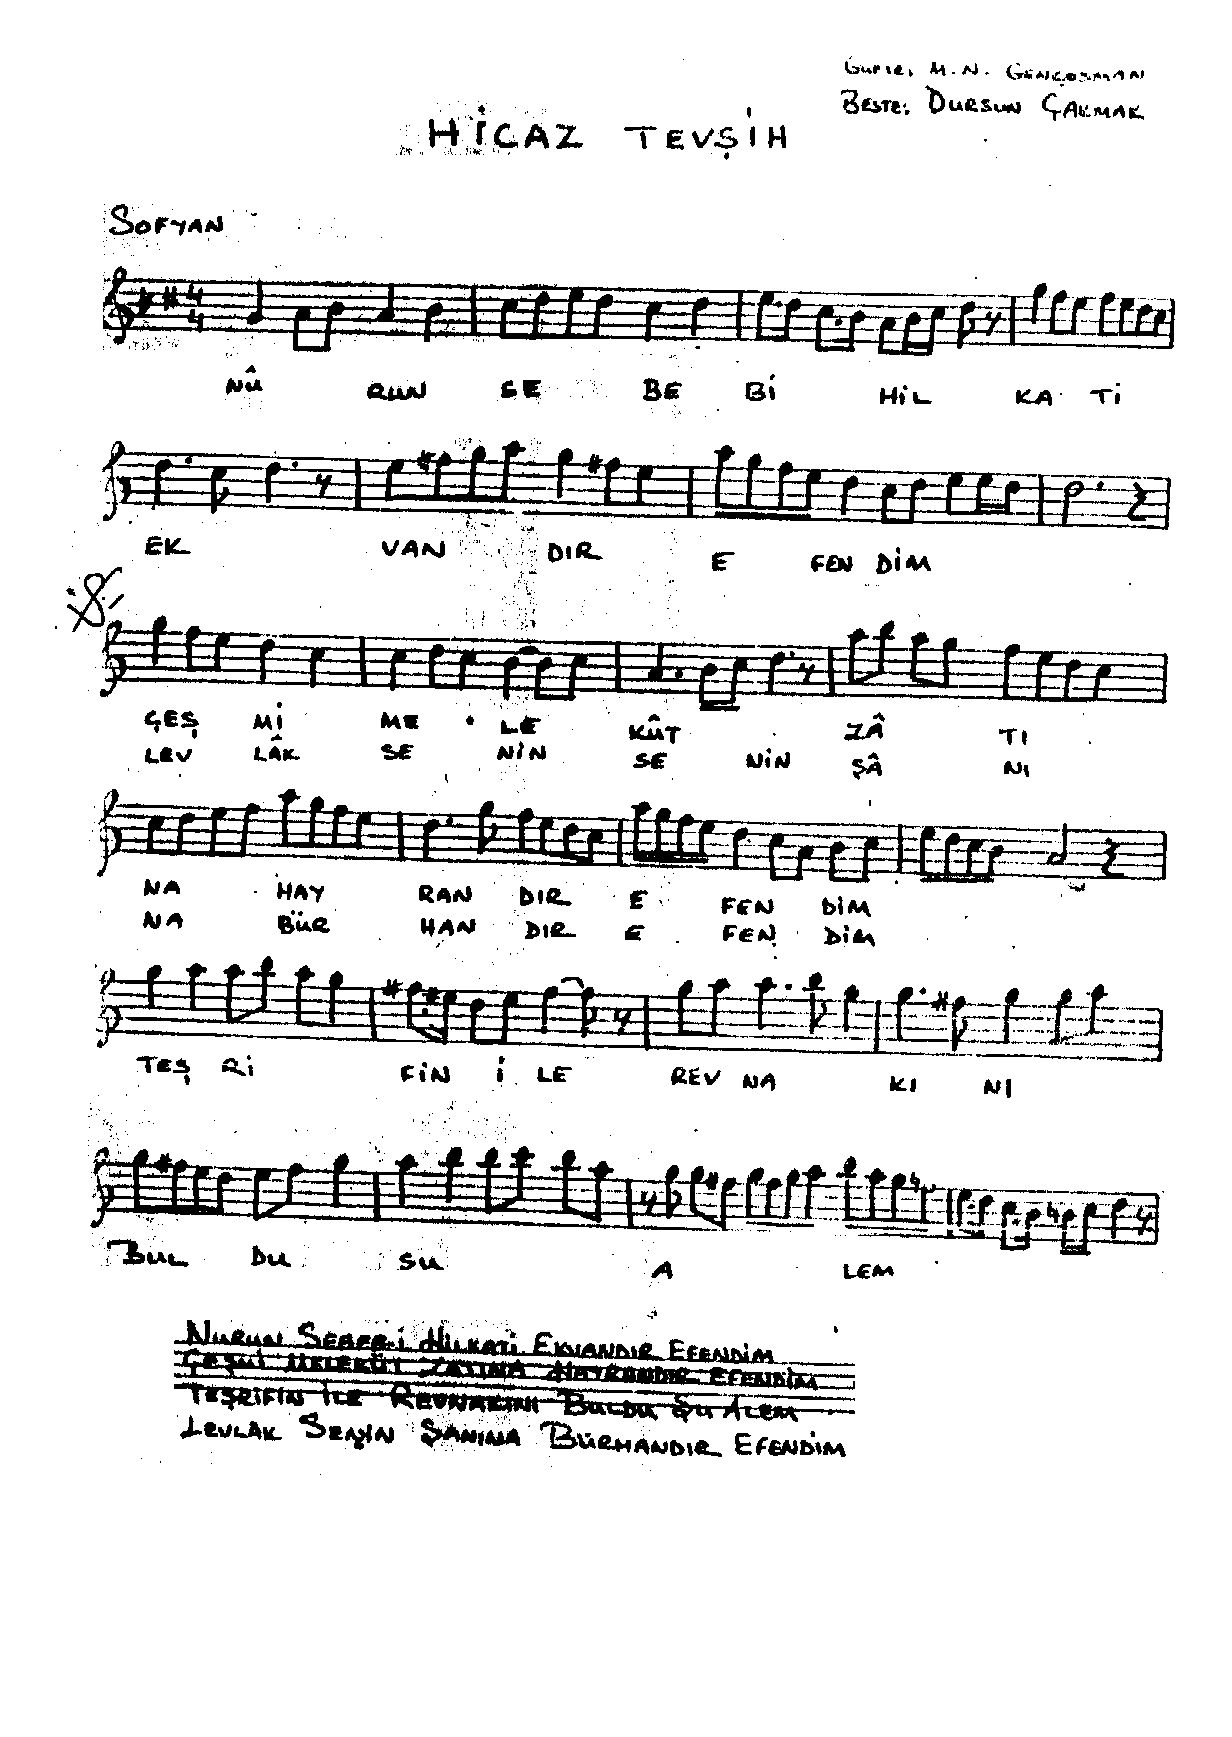 Güfte: M.N. GENÇOSMAN
BESTE: DURSUN ÇAKMAK
HİCAZ TEVŞİH
SOFYAN
4
4
NÛ RUN SE BE Bİ HİL KA Tİ
EK VAN DIR E FEN DİM
ÇEŞ Mİ ME LE KÛT ZÂ TI
LEV LÂK SE NİN SE NİN ŞÂ NI
NA HAY RAN DIR E FEN DİM
NA BÜR HAN DIR E FEN DİM
TEŞ Rİ FİN İ LE REV NA KI NI
BUL DU SU A LEM
NURUN SEBEB-İ HİLKATİ EKVANDIR EFENDİM
ÇEŞMİ MELEKÛT ZATINA HAYRANDIR EFENDİM
TEŞRİFİN İLE REVNAKINI BULDU ŞU ALEM
LEVLAK SENİN ŞANINA BÜRHANDIR EFENDİM